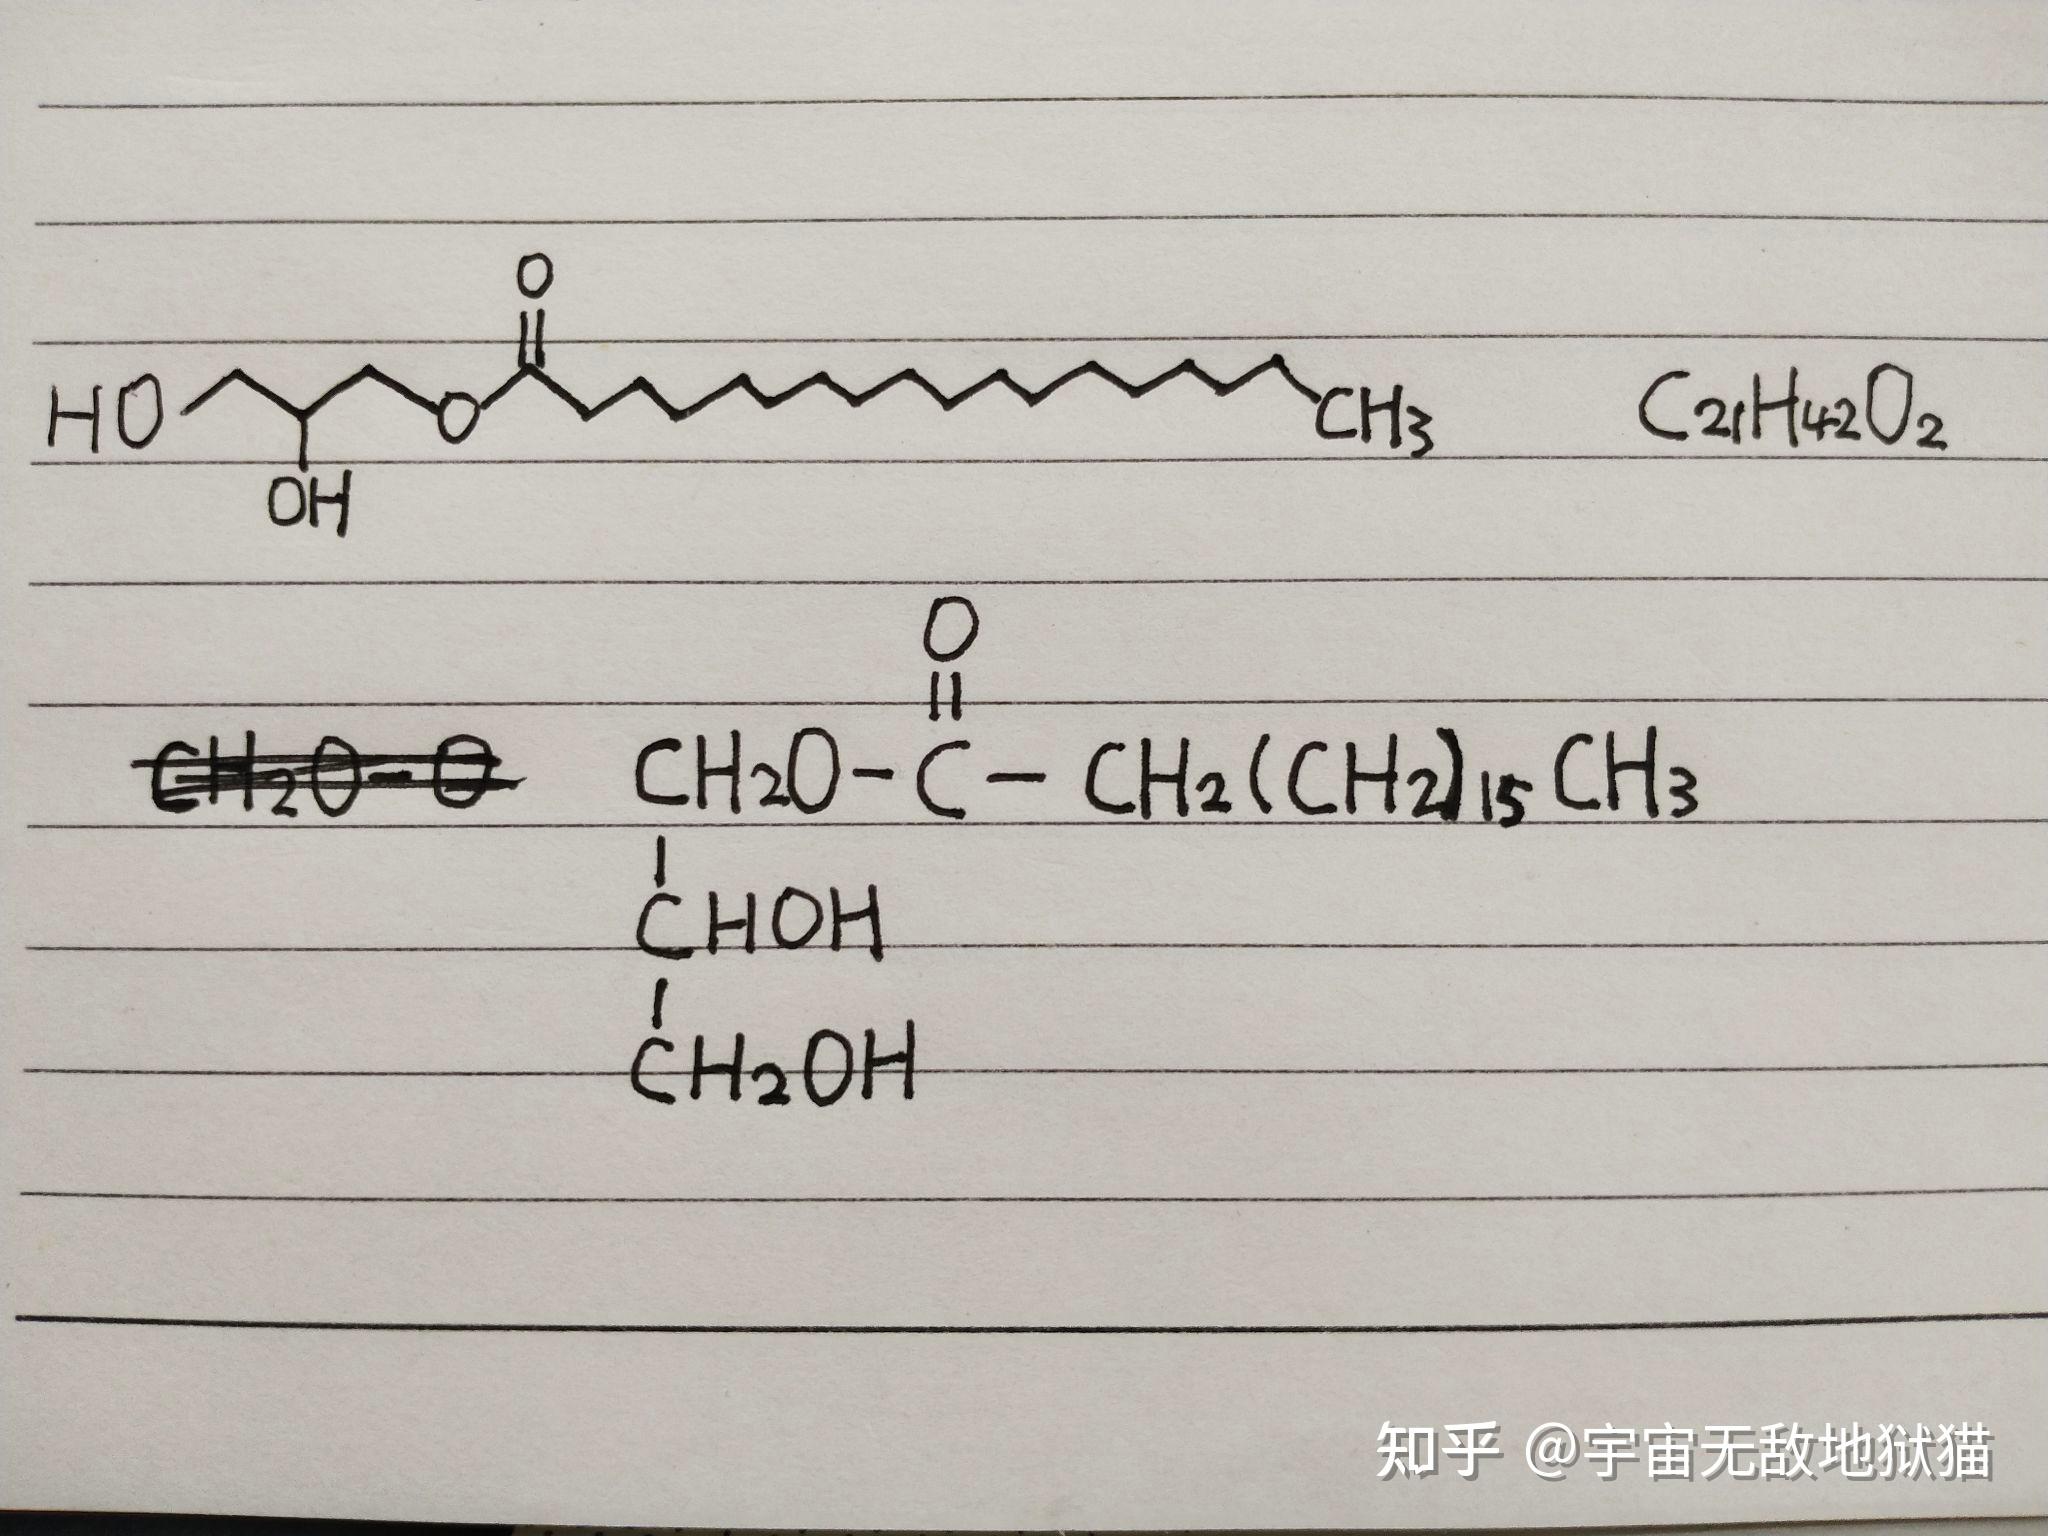 O
HO O CH3 C21H42O2
OH
O
CH2O-O CH2O-C-CH2(CH2)15CH3
CHOH
CH2OH
知乎 @宇宙无敌地狱猫